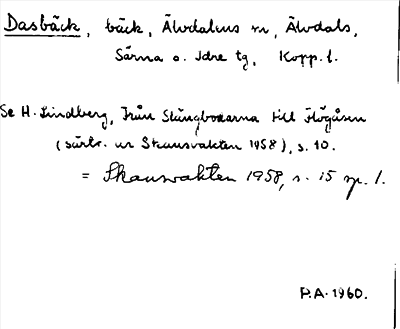 Dasbäck, bäck, Älvdalens sn, Älvdals,
Särna o. Idre tg, Kopp. l.
Se H. Lindberg, Från Stängbovarna till Högåsen
(särtr. ur Skansvakten 1958), s. 10.
= Skansvakten 1958, s. 15 sp. 1.
P.A. 1960.